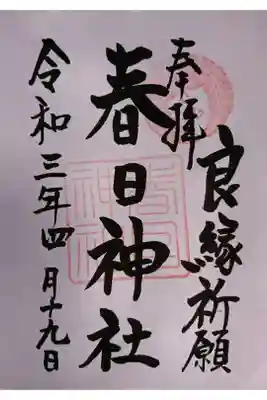 奉拝
良縁祈願
春日神社
令和三年四月十九日